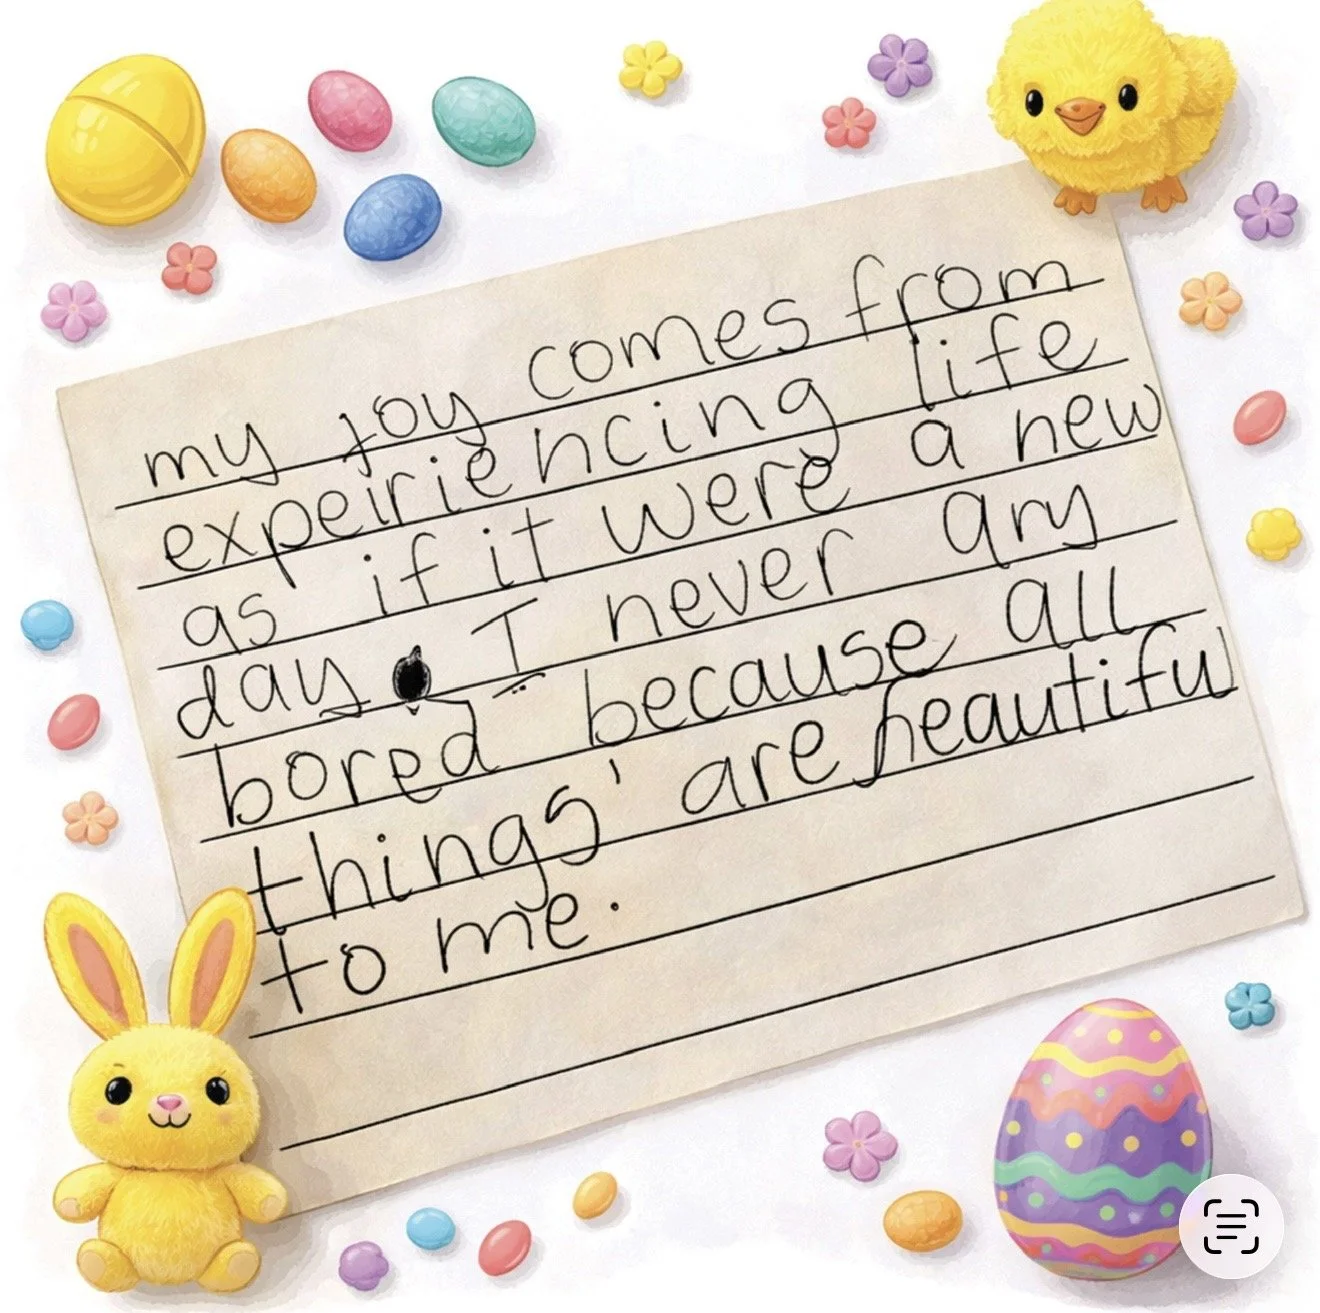 my joy comes from
expeiriencing life
as if it were a new
day I never any
bored because all
things' are beautiful
to me.